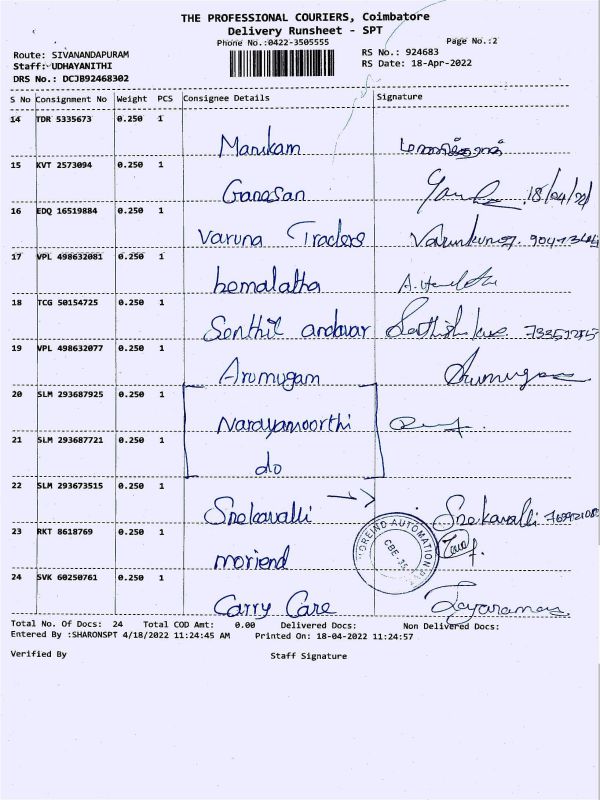 THE PROFESSIONAL COURIERS, Coimbatore
Delivery Runsheet - SPT
Phone No.:0422-3505555
Page No.:2
Route: SIVANANDAPURAM
RS No.: 924683
Staff: UDHAYANITHI
RS Date: 18-Apr-2022
DRS No.: DCJB92468302
S No Consignment No Weight PCS Consignee Details Signature
14 TDR 5335673 0.250 1
Manikam
15 KVT 2573094 0.250 1
Ganesan 18/04/22
16 EDQ 16519884 0.250 1
Varuna Traders
17 VPL 498632081 0.250 1
hemalatha
18 TCG 50154725 0.250 1
Senthil andavar
19 VPL 498632077 0.250 1
Arumugam Arumugam
20 SLM 293687925 0.250 1
Narayamoorthi
21 SLM 293687721 0.250 1
do
22 SLM 293673515 0.250 1
Snekavalli Snekavalli
23 RKT 8618769 0.250 1
moriend
MOREIND AUTOMATION
CBE-35
24 SVK 60250761 0.250 1
Carry Care Jayaraman
Total No. Of Docs: 24 Total COD Amt: 0.00 Delivered Docs: Non Delivered Docs:
Entered By :SHARONSPT 4/18/2022 11:24:45 AM Printed On: 18-04-2022 11:24:57
Verified By Staff Signature